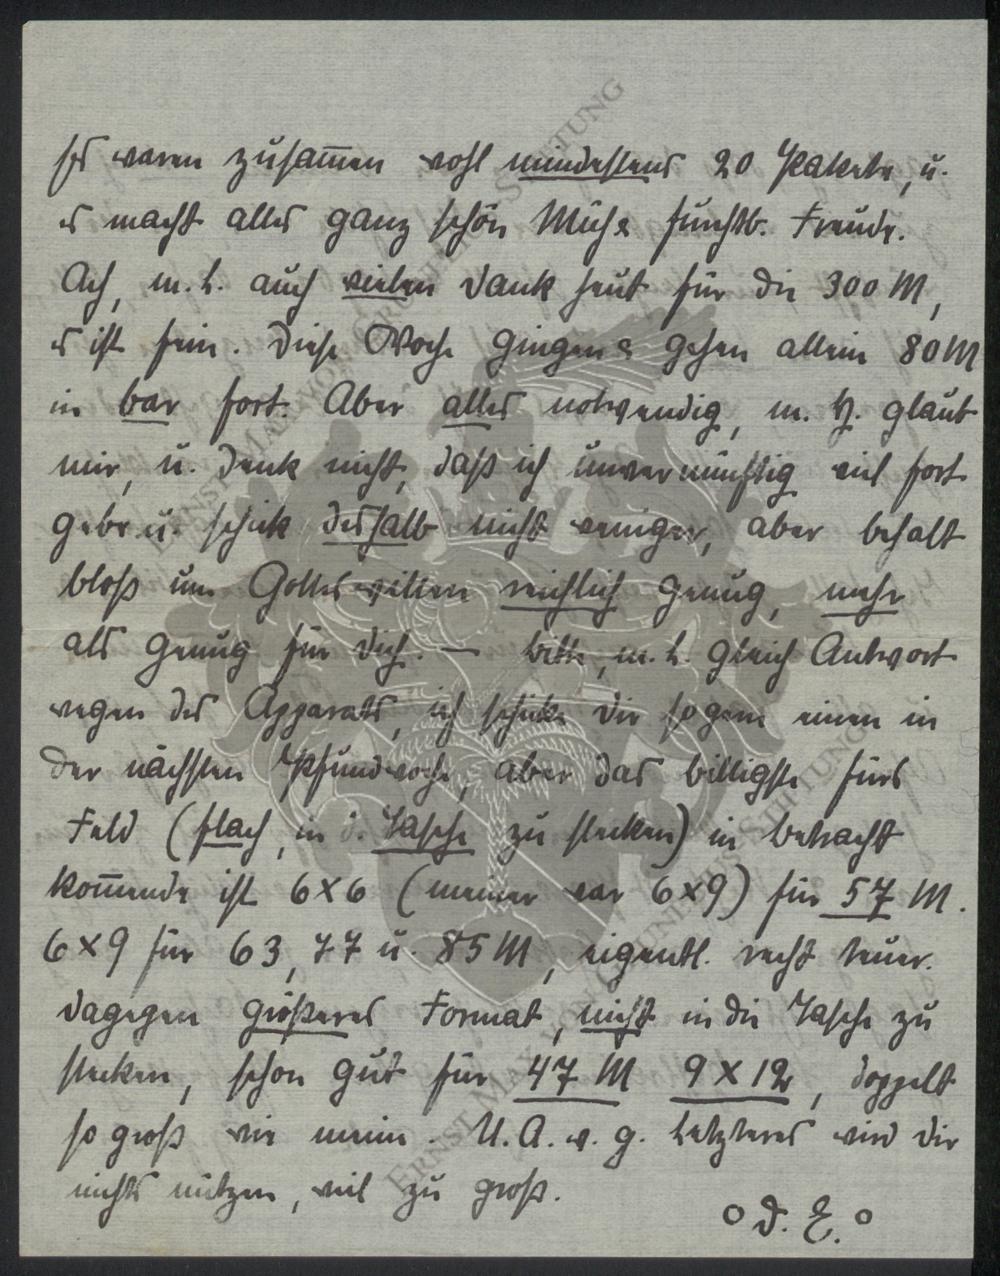 Es waren zusammen wohl mindestens 20 Pakete, u.
es macht alles ganz schön Müh & furchtb. Freude.
Ach, m. L. auch vielen Dank heut für die 300 M,
es ist fein. Diese Woche gingen & gehen allein 80 M
in bar fort. Aber alles notwendig, m. H. glaub
mir, u. denk nicht, daß ich unvernünftig viel fort
gebe u. schick deshalb nicht weniger, aber behalt
bloß um Gotteswillen reichlich genug, mehr
als genug für Dich. — Bitte, m. L. gleich Antwort
wegen des Apparats, ich schicke Dir so gern einen in
der nächsten Pfundwoche, aber das billigste fürs
Feld (flach, in d. Tasche zu stecken) in Betracht
kommende ist 6x6 (meiner war 6x9) für 57 M.
6x9 für 63, 77 u. 85 M, eigentl. recht teuer.
Dagegen größeres Format, nicht in die Tasche zu
stecken, schon gut für 47 M 9x12, doppelt
so groß wie meine. U. A. w. g. Letzteres wird Dir
nichts nützen, viel zu groß.
o D. E. o
ERNST MAX VON GRUNELIUS-STIFTUNG
ERNST MAX VON GRUNELIUS-STIFTUNG